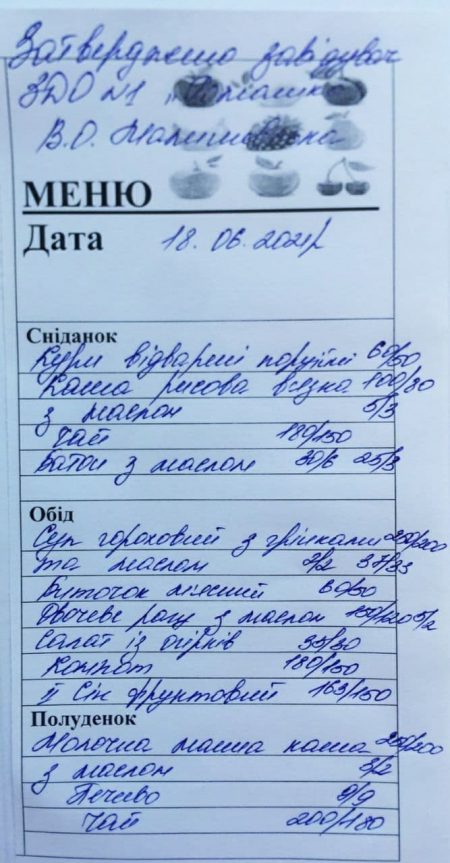 Затверджено завідувач
ЗДО №1 "Ромашка"
В.О. Малишевська
МЕНЮ
Дата 18.06.2021р
Сніданок
Кури відварені порційні 60/50
Каша рисова в'язка 100/80
з маслом 5/3
Чай 180/150
Батон з маслом 30/6 25/3
Обід
Суп гороховий з грінками 250/200
та маслом 2/2 37/23
Биточок м'ясний 60/50
Овочеве рагу з маслом 150/120 5/2
Салат із огірків 35/30
Компот 180/150
ІІ Сік фруктовий 163/150
Полуденок
Молочна манна каша 250/200
з маслом 3/2
Печиво 9/9
Чай 200/180